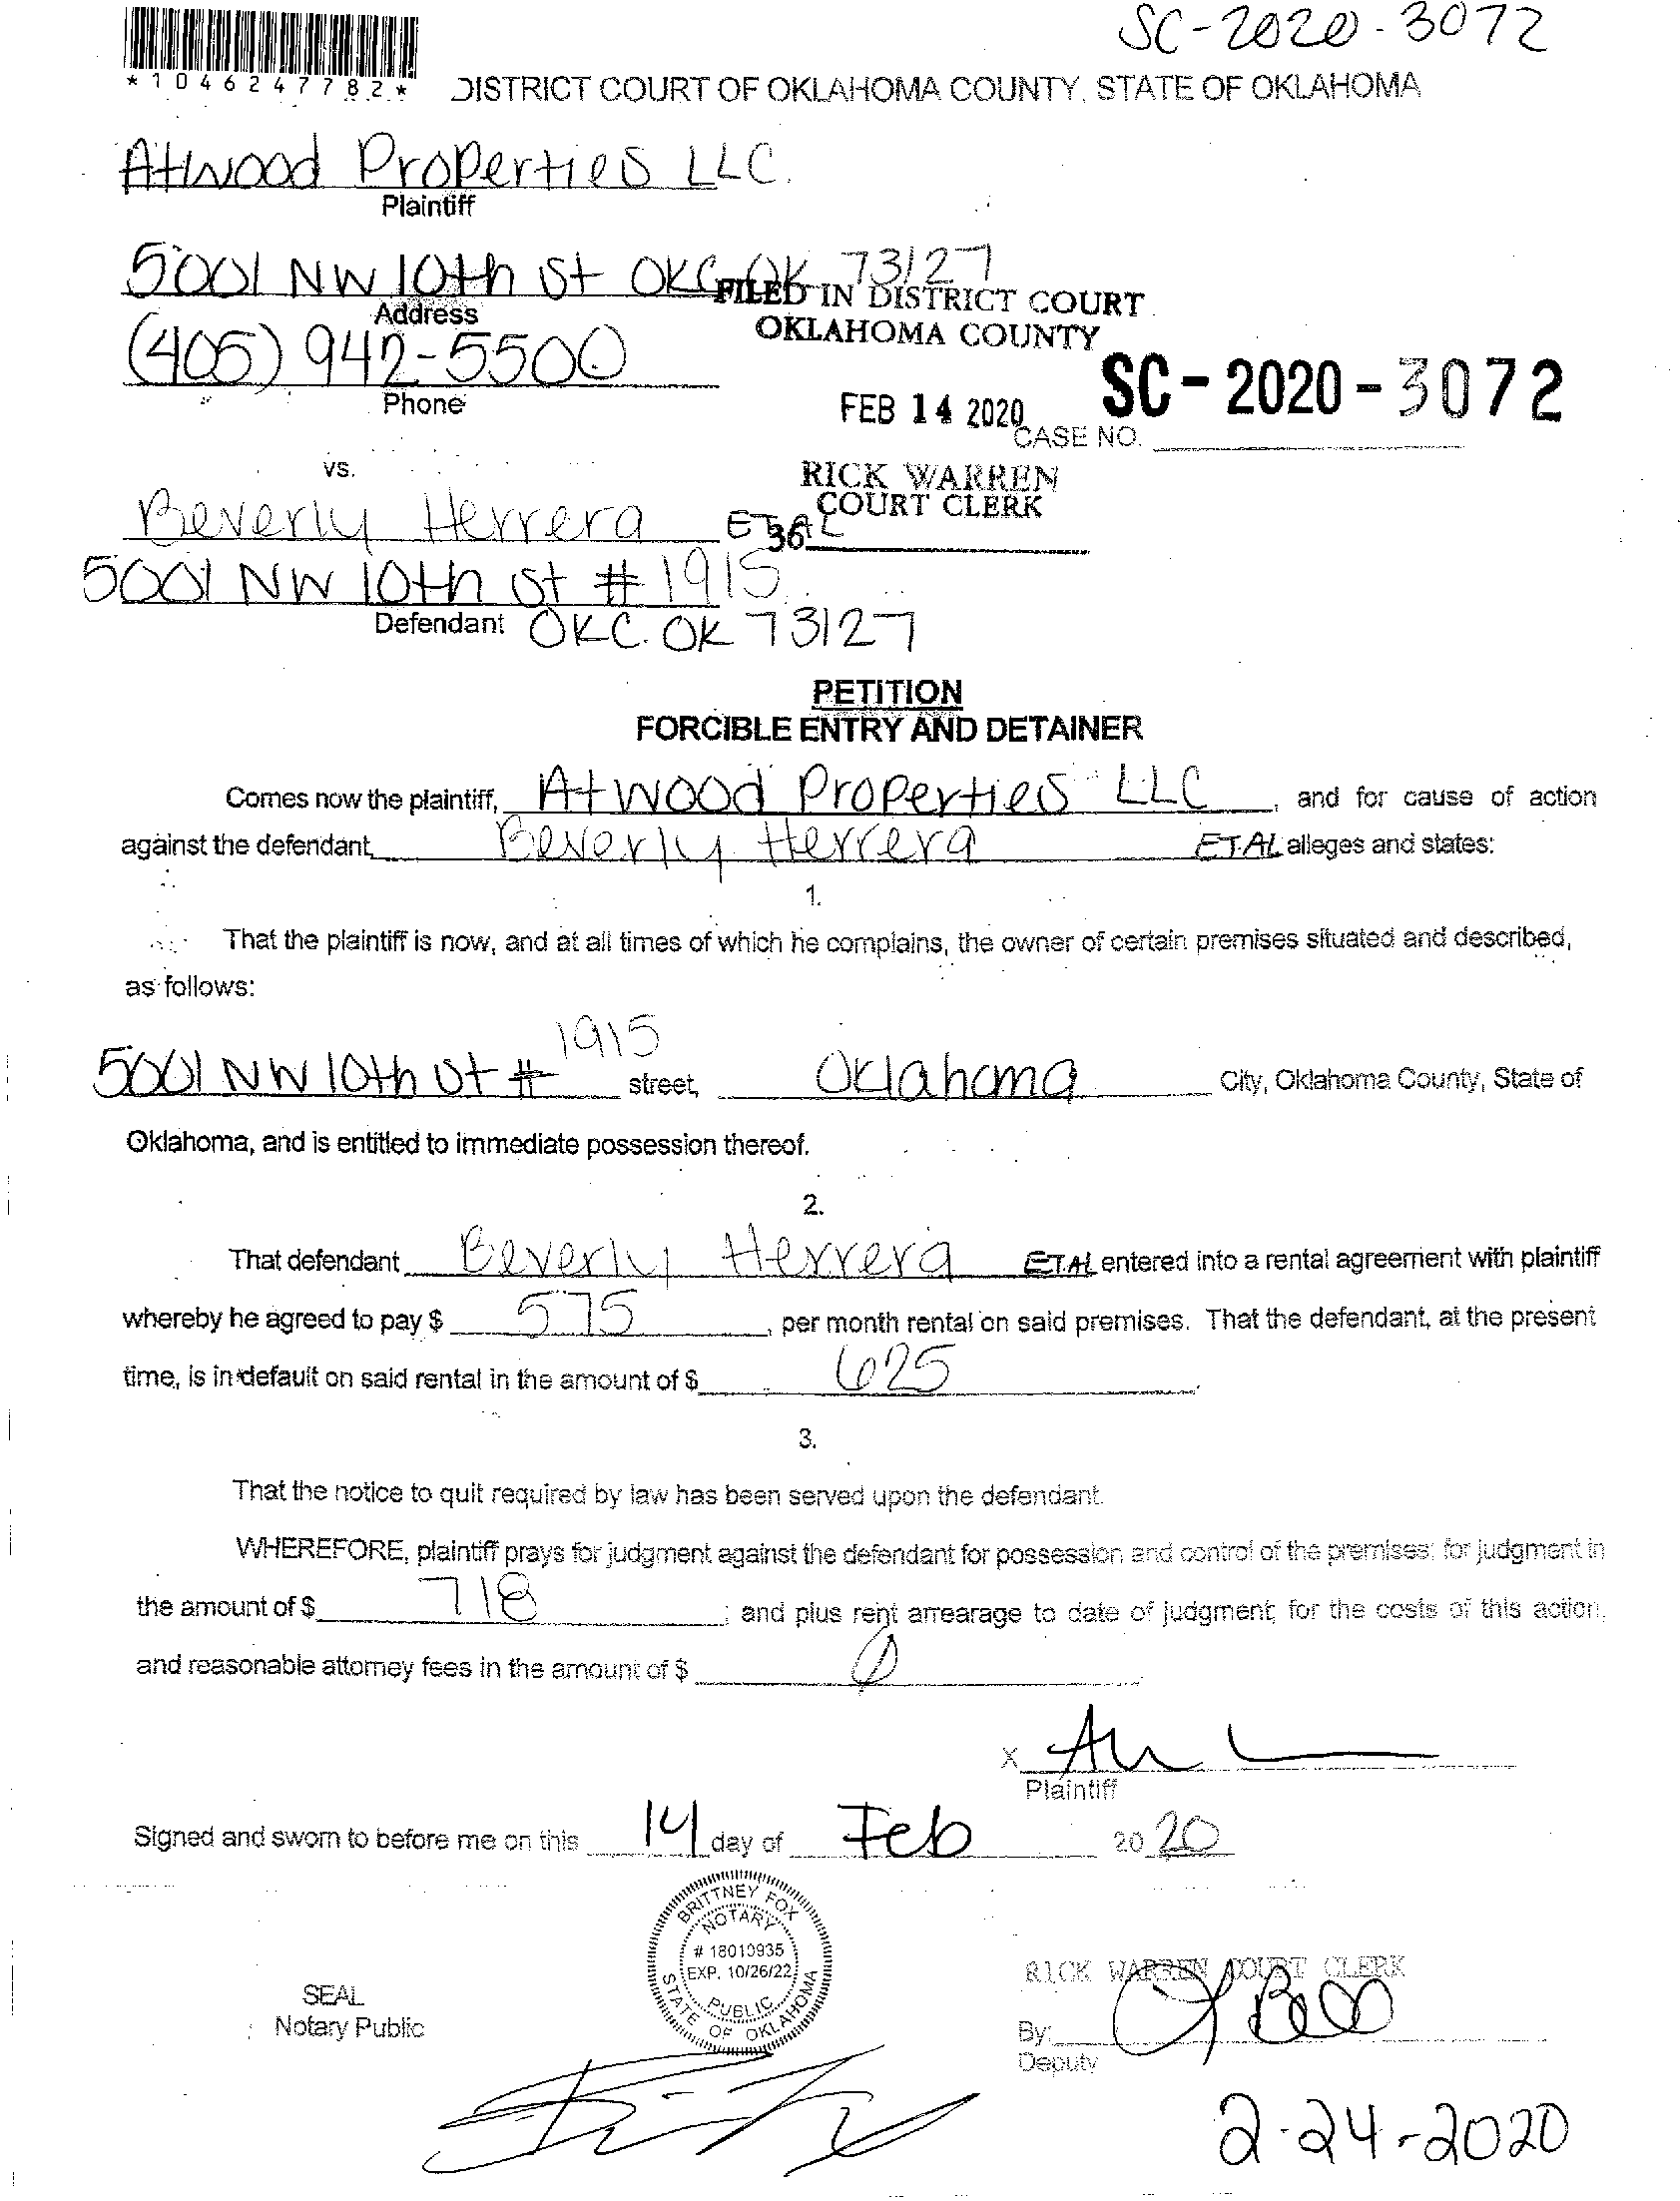 SC-2020-3072
*1046247782*
DISTRICT COURT OF OKLAHOMA COUNTY, STATE OF OKLAHOMA
Atwood Properties LLC.
Plaintiff
5001 NW 10th St OKC OK 73127
Address
FILED IN DISTRICT COURT
OKLAHOMA COUNTY
(405) 942-5500
Phone
FEB 14 2020
SC-2020-3072
CASE NO.
vs.
RICK WARREN
COURT CLERK
Beverly Herrera ET AL
36
5001 NW 10th St # 1915
Defendant OKC. OK 73127
PETITION
FORCIBLE ENTRY AND DETAINER
Comes now the plaintiff, Atwood Properties LLC, and for cause of action
against the defendant, Beverly Herrera ET AL alleges and states:
1.
That the plaintiff is now, and at all times of which he complains, the owner of certain premises situated and described,
as follows:
5001 NW 10th St # 1915 street, Oklahoma City, Oklahoma County, State of
Oklahoma, and is entitled to immediate possession thereof.
2.
That defendant Beverly Herrera ET AL entered into a rental agreement with plaintiff
whereby he agreed to pay $ 575, per month rental on said premises. That the defendant, at the present
time, is in default on said rental in the amount of $ 625.
3.
That the notice to quit required by law has been served upon the defendant.
WHEREFORE, plaintiff prays for judgment against the defendant for possession and control of the premises; for judgment in
the amount of $ 718; and plus rent arrearage to date of judgment; for the costs of this action,
and reasonable attorney fees in the amount of $ 0
X
Plaintiff
Signed and sworn to before me on this 14 day of Feb 2020
BRITTNEY FOX
NOTARY
# 18010935
EXP. 10/26/22
PUBLIC
STATE OF OKLAHOMA
SEAL
Notary Public
RICK WARREN COURT CLERK
By:
Deputy
2-24-2020